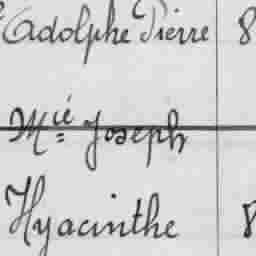 Adolphe Pierre 8
Mcié Joseph
Hyacinthe 8